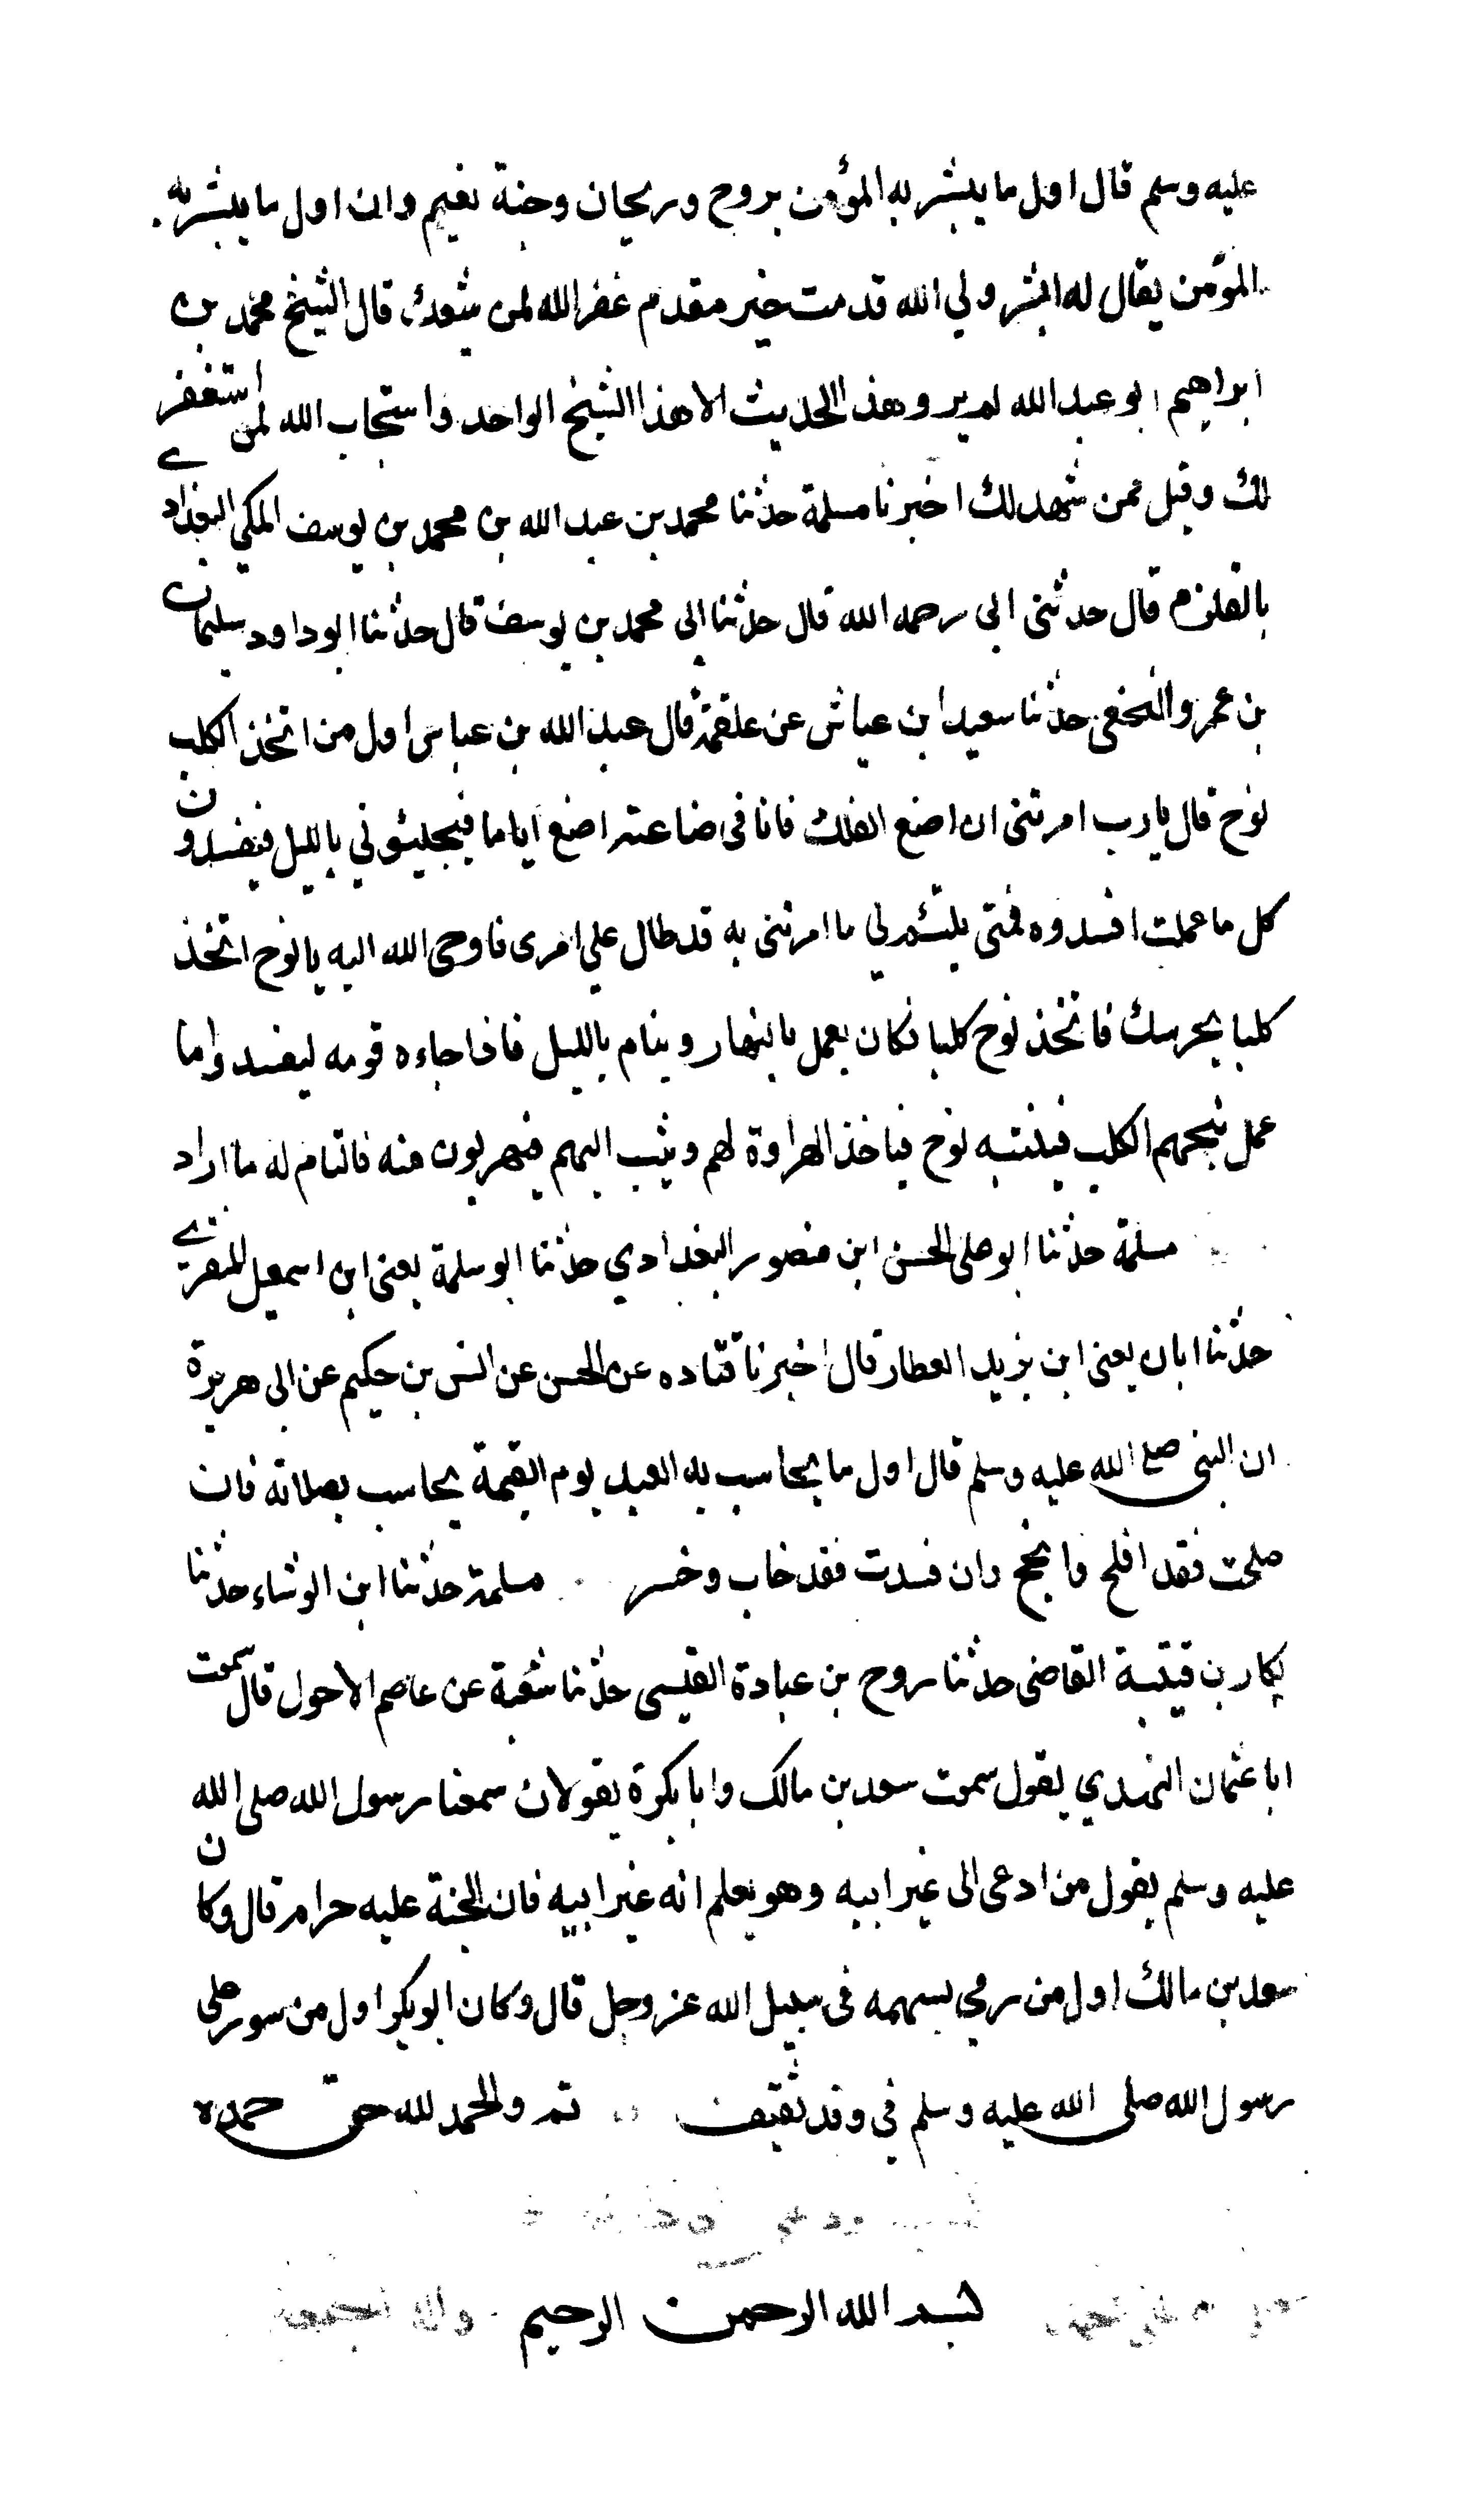 عليه وسلم قال اول ما يبشر به المؤمن بروح وريحان وجنة نعيم وان اول ما يبشر به
المؤمن يقال له ابشر ولي الله قدمت خير مقدم غفر الله لمن شيعك قال الشيخ محمد بن
ابراهيم ابو عبد الله لم يرو هذا الحديث الا هذا الشيخ الواحد واستجاب الله لمن استغفر
لك وقبل ممن شهد لك اخبرنا مسلمة حدثنا محمد بن عبد الله بن محمد بن يوسف المكي البغدادي
بالقلزم قال حدثني ابي رحمه الله قال حدثنا ابي محمد بن يوسف قال حدثنا ابو داود سليمان
بن عمرو النخعي حدثنا سعيد ابن عياش عن علقمة قال عبد الله بن عباس اول من اتخذ الكلب
نوح قال يا رب امرتني ان اصنع الفلك فانا في صناعته اصنع اياما فيجيئوني بالليل فيفسدون
كل ما عملت افسدوه فمتى يلتئم لي ما امرتني به قد طال علي امري فاوحى الله اليه يا نوح اتخذ
كلبا يحرسك فاتخذ نوح كلبا فكان يعمل بالنهار وينام بالليل فاذا جاءه قومه ليفسدوا ما
عمل نبحهم الكلب فينتبه نوح فياخذ الهراوة لهم ويثب اليهم فيهربون منه فالتام له ما اراد
مسلمة حدثنا ابو على الحسن ابن منصور البغدادي حدثنا ابو سلمة يعنى ابن اسمعيل المنقري
حدثنا ابان يعنى ابن يزيد العطار قال اخبرنا قتاده عن الحسن عن انس بن حكيم عن ابى هريرة
ان النبى صلى الله عليه وسلم قال اول ما يحاسب به العبد يوم القيمة يحاسب بصلاته فان
صلحت فقد افلح وانجح وان فسدت فقد خاب وخسر مسلمة حدثنا ابن الوشاء حدثنا
بكار بن قتيبة القاضى حدثنا روح بن عبادة القيسى حدثنا شعبة عن عاصم الاحول قال سمعت
ابا عثمان النهدي يقول سمعت سعد بن مالك وابا بكرة يقولان سمعنا رسول الله صلى الله
عليه وسلم يقول من ادعى الى غير ابيه وهو يعلم انه غير ابيه فان الجنة عليه حرام قال وكان
سعد بن مالك اول من رمي بسهمه فى سبيل الله عز وجل قال وكان ابو بكرة اول من سور على
رسول الله صلى الله عليه وسلم في وفد ثقيف تم والحمد لله حق حمده
بسم الله الرحمن الرحيم